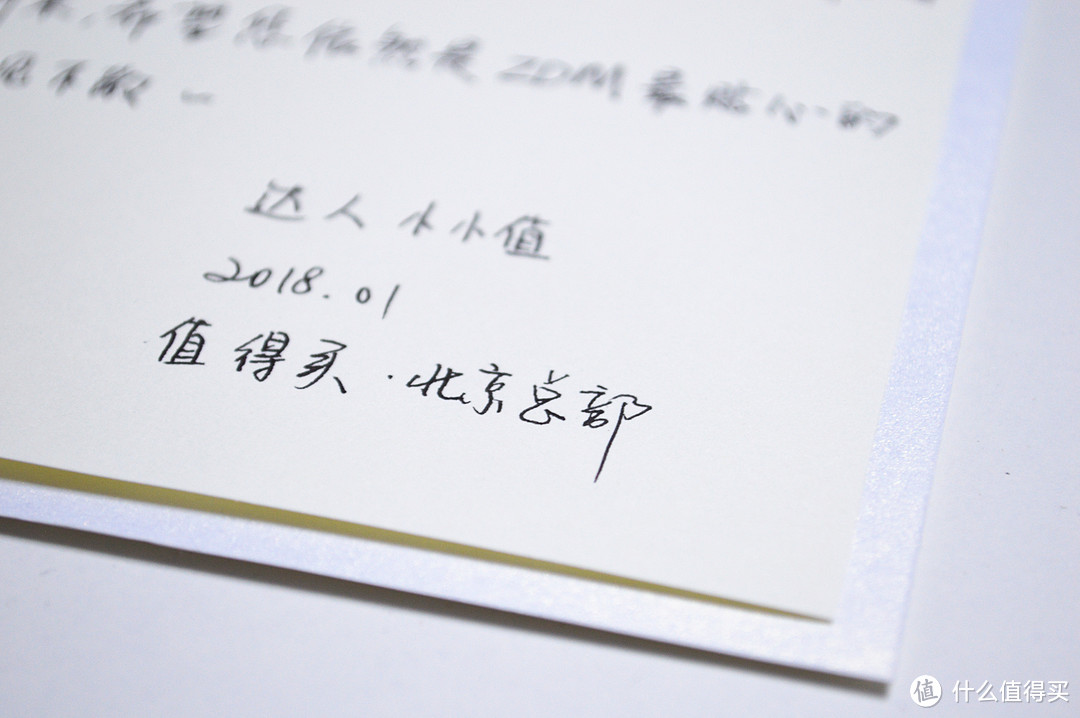 希望您依然是ZDM最贴心的
见不散 一
达人小小值
2018.01
值得买·北京总部
值 什么值得买